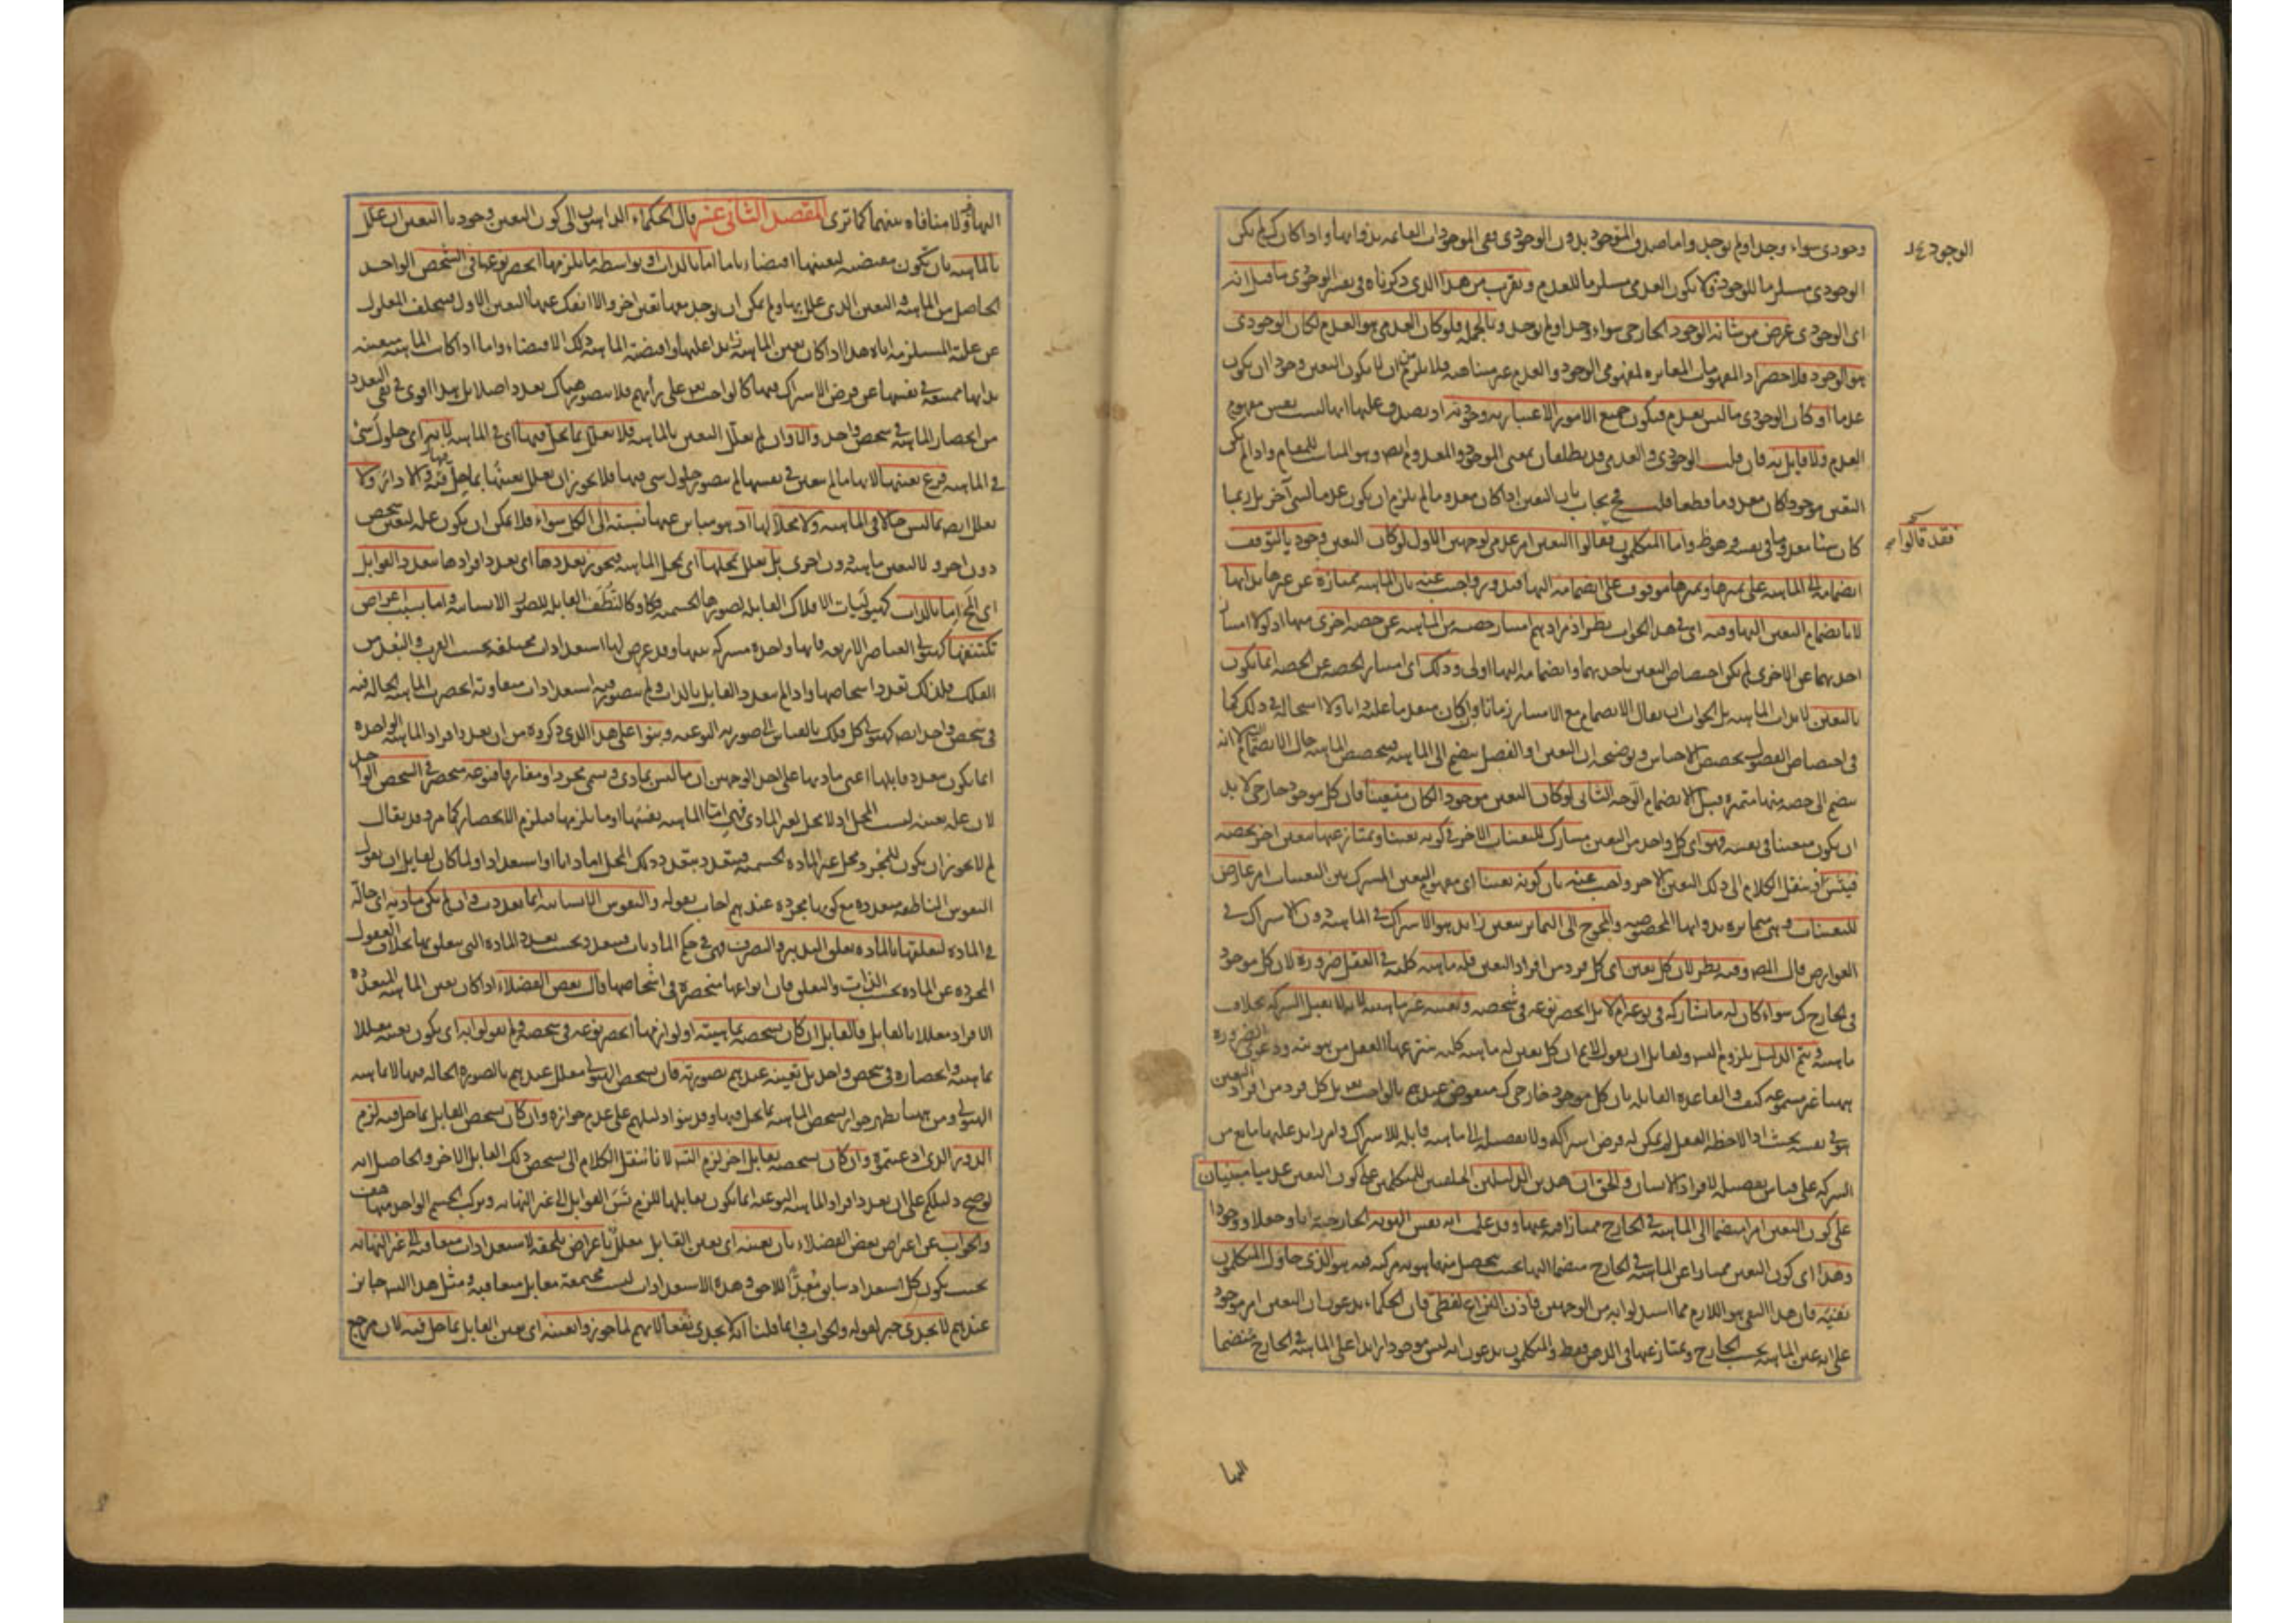 وجودى سواء وجد او لم يوجد واما صدق الموجود بدون الوجودى ففى الموجودات القائمة بذواتها واذا كان كك لم يكن
الوجودى مستلزما للموجود ولا يكون العدمى مستلزما للمعدوم ويقرب من هذا الذى ذكرناه فى تفسير الوجودى ما قيل انه
اى الوجودى عرض من شانه الوجود الخارجى سواء وجد او لم يوجد وبالجملة فلو كان العدمى هو العدم لكان الوجودى
هو الوجود فلا حصر اذ المفهومات المغايرة لمفهومى الوجود والعدم غير متناهية فلا يلزم من ان لا يكون التعين وجودا ان يكون
عدما او كان الوجودى ما ليس بعدم فيكون جميع الامور الاعتبارية وجودية اذ يصدق عليها انها ليست نفس مفهوم
العدم ولا قايل به فان قلت الوجودى والعدمى قد يطلقان بمعنى الموجود والمعدوم ايضا وهو المناسب للمقام واذا لم يكن
التعين موجودا كان معدوما قطعا قلت فح يجاب بان التعين اذا كان معدوما لم يلزم ان يكون عدما لشىء آخر بل ربما
كان شيئا معدوما فى نفسه وهو ظ واما المتكلمون فقالوا التعين امر عدمى لوجهين الاول لو كان التعين وجوديا لتوقف
انضمامه الى الماهية على تميزها وتميزها موقوف على انضمامه اليها فيدور واجيب عنه بان الماهية ممتازة عن غيرها بذاتها
لا بانضمام التعين اليها وفيه اى فى هذا الجواب نظر اذ مرادهم امتياز حصة من الماهية عن حصة اخرى منها اذ لولا امتياز
احديهما عن الاخرى لم يكن اختصاص التعين باحديهما وانضمامه اليها اولى وذلك اى امتياز الحصة عن الحصة انما يكون
بالتعين لا بذات الماهية بل الجواب ان يقال الانضمام مع الامتياز زمانا وان كان متقدما عليه ذاتا ولا استحالة فى ذلك كما
فى اختصاص الفصول بحصص الاجناس وتوضيحه ان التعين او الفصل ينضم الى الماهية فيتخصص الماهية حال الانضمام لا انه
ينضم الى حصة منها متميزة قبل الانضمام الوجه الثانى لو كان التعين موجودا لكان متعينا فان كل موجود خارجى لا بد
ان يكون متعينا فى نفسه فهو اى كل واحد من التعين مشارك للتعينات الاخر فى كونه تعينا ويمتاز عنها بتعين آخر يخصه
فيتس وننقل الكلام الى ذلك التعين الاخر واجيب عنه بان كونه تعينا اى مفهوم التعين المشترك بين التعينات امر عارض
للتعينات وهى متمايزة بذواتها المخصوصة والمحوج الى التمايز بتعين زايد هو الاشتراك فى الماهية دون الاشتراك فى
العوارض قال المص وفيه نظر لان كل تعين اى كل فرد من افراد التعين فله ماهية كلية فى العقل ضرورة لان كل موجود
فى الخارج كك سواء كان له ما يشاركه فى نوعه ام لا بل انحصر نوعه فى شخصه وتعينه غير ماهيته لانها لا تقبل الشركة بخلاف
ماهيته ويتم الدليل بلزوم التس ولقايل ان يقول لا نم ان كل تعين له ماهية كلية ينتزعها العقل من هويته ودعوى الضرورة
ههنا غير مسموعة كيف والقاعدة القايلة بان كل موجود خارجى كك منقوض عندهم بالواجب تعا بل كل فرد من افراد التعين
هو فى نفسه بحيث اذا لاحظه العقل لم يمكن له فرض اشتراكه ولا تفصيله الى ماهية قابلة للاشتراك وامر زايد عليها مانع من
الشركة على قياس تفصيله لافراد الانسان والحق ان هذين الدليلين للمتكلمين على كون التعين عدميا مبنيان
على كون التعين امرا منضما الى الماهية فى الخارج ممتازا فيه عنها وقد علمت انه نفس الهوية الخارجية ذاتا وجعلا ووجودا
وهذا اى كون التعين ممتازا عن الماهية فى الخارج منضما اليها بحيث يتحصل منهما هوية مركبة فيه هو الذى حاول المتكلمون
نفيه فان هذا النفى هو اللازم مما استدلوا به من الوجهين فاذن النزاع لفظى فان الحكماء يدعون ان التعين امر موجود
على انه عين الماهية بحسب الخارج ويمتاز عنها فى الذهن فقط والمتكلمون يدعون انه ليس موجودا زايدا على الماهية فى الخارج منضما
اليها
فقد قالوا
اليها فيه ولا منافاة بينهما كما ترى المقصد الثانى عشر قال الحكماء الذاهبون الى كون التعين وجوديا التعين ان علل
بالماهية بان تكون مقتضية لتعينها اقتضاء تاما اما بالذات او بواسطة ما يلزمها انحصر نوعها فى الشخص الواحد
الحاصل من الماهية والتعين الذى علل بها ولم يمكن ان يوجد معها تعين اخر والا انفك عنها التعين الاول فيتخلف المعلول
عن علته المستلزمة اياه هذا اذا كان تعين الماهية زايدا عليها واقتضته الماهية ذلك الاقتضاء واما اذا كانت الماهية متعينة
بذاتها ممتنعة فى نفسها عن فرض الاشتراك فيها كالواجب تعا على رأيهم فلا يتصور هناك تعدد اصلا بل هذا اقوى فى نفى التعدد
من انحصار الماهية فى شخص واحد والا اى وان لم يعلل التعين بالماهية فلا يعلل بما يحل فيها اى فى الماهية لتاخره اى حلول شىء
فى الماهية فرع تعينها لانها ما لم تتعين فى نفسها لم يتصور حلول شىء فيها فلا يجوز ان يعلل تعينها بما حل فيها والا دار ولا
يعلل ايضا بما ليس حالا فى الماهية ولا محلا لها اذ هو مباين عنها نسبته الى الكل سواء فلا يمكن ان يكون علة لتعين شخص
دون اخر ولا لتعين ماهية دون اخرى بل يعلل بمحلها اى بمحل الماهية فيجوز تعددها اى تعدد افرادها بتعدد القوابل
اى المحال اما بالذات كهيوليات الافلاك القابلة لصورها الجسمية وكالنطف القابلة للصور الانسانية واما بسبب اعراض
تكتنفها كهيولى العناصر الاربعة فانها واحدة مشتركة بينها وقد عرض لها استعدادات مختلفة بحسب القرب والبعد من
الفلك فلذلك تعدد اشخاصها واذا لم يتعدد القابل بالذات ولم يتصور فيه استعدادات متفاوتة انحصر الماهية الحالة فيه
فى شخص واحد ايضا كهيولى كل فلك بالقياس الى صورته النوعية وبنوا على هذا الذى ذكروه من ان تعدد افراد الماهية الواحدة
انما يكون بتعدد قابلها اعنى مادتها على احد الوجهين ان ما ليس بمادى ويسمى مجردا ومفارقا فنوعه منحصر فى الشخص الواحد
لان علة تعينه ليست المحل اذ لا محل لغير المادى فهى اما الماهية نفسها او ما يلزمها فيلزم الانحصار كما مر وقد يقال
لم لا يجوز ان يكون للمجرد محل غير المادة الجسمية فيتعدد بتعدد ذلك المحل اما ذاتا او استعدادا ولما كان لقايل ان يقول
النفوس الناطقة متعددة مع كونها مجردة عندهم اجاب بقوله والنفوس الانسانية انما تعددت وان لم تكن مادية اى حالة
فى المادة لتعلقها بالمادة تعلق التدبير والتصرف فهى فى حكم الماديات فيتعدد بحسب تعدد المادة التى يتعلق بها بخلاف العقول
المجردة عن المادة بحسب الذات والتعلق فان انواعها منحصرة فى اشخاصها قال بعض الفضلاء اذا كان تعين الماهية المتعددة
الافراد معللا بالقابل فالقابل ان كان تشخصه بماهيته او لوازمها انحصر نوعه فى شخصه ولم يقولوا به اى بكون تعينه معللا
بماهيته وانحصاره فى شخص واحد بل تعينه عندهم بصورته فان تشخص الهيولى معلل عندهم بالصورة الحالة فيها لا بماهية
الهيولى ومن ههنا يظهر جواز تشخص الماهية بما يحل فيها وقد بنوا دليلهم على عدم جوازه وان كان تشخص القابل بما حل فيه لزم
الدور الذى ادعيتموه وان كان تشخصه بقابل اخر لزم التس لانا ننقل الكلام الى تشخص ذلك القابل الاخر والحاصل انه
لو صح دليلكم على ان تعدد افراد الماهية النوعية انما يكون بقابلها للزم تس القوابل الى غير النهاية وتركب الجسم الواحد منها
والجواب عن اعتراض بعض الفضلاء بان تعينه اى تعين القابل معلل باعراض تلحقه لاستعدادات متعاقبة الى غير النهاية
بحيث يكون كل استعداد سابق معدا للاحق وهذه الاستعدادات ليست مجتمعة معا بل متعاقبة ومثل هذا التس جايز
عندهم لا يجدى خبر لقوله والجواب وانما قلنا انه لا يجدى نفعا لانهم لما جوزوا تعينه اى تعين القابل بما حل فيه لان مرجع